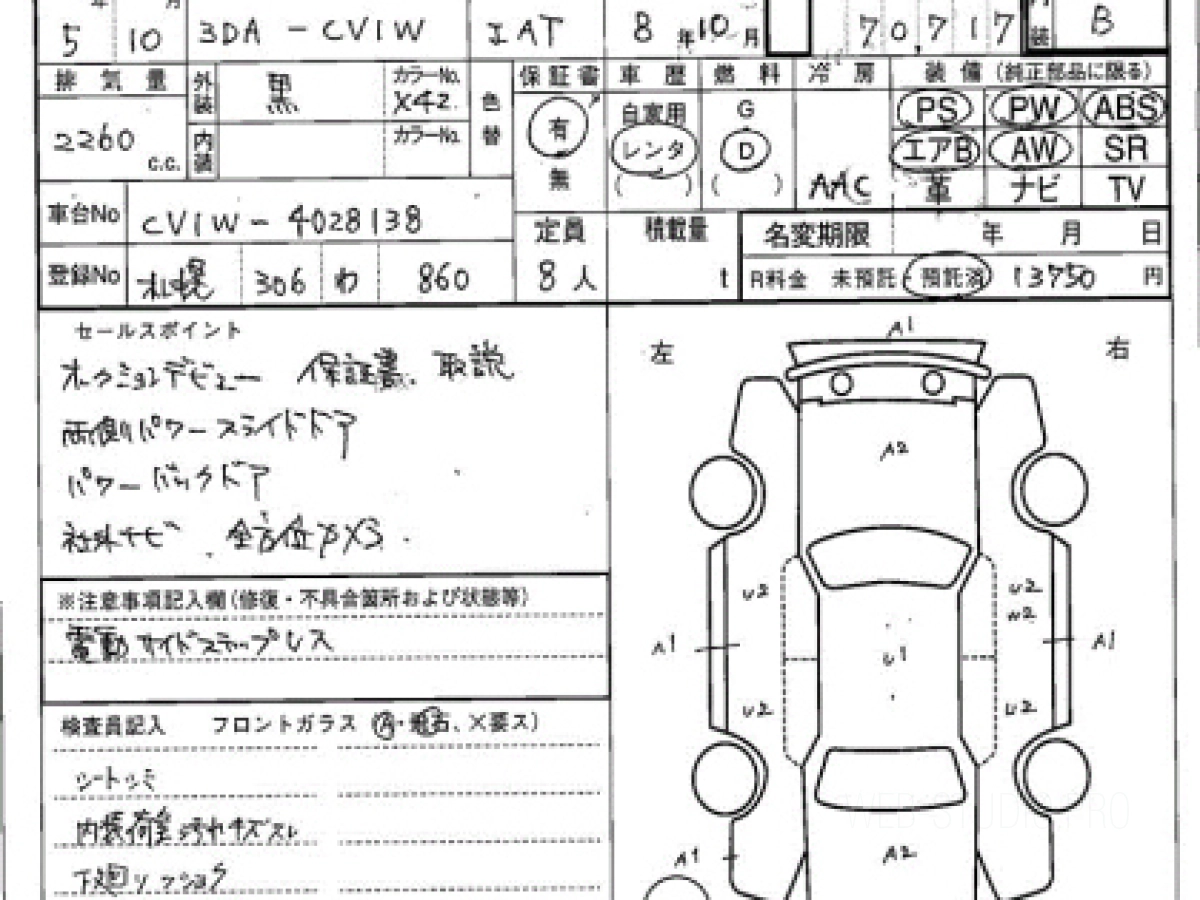 年 月 年 月 内装
5 10 3DA-CV1W IAT 8 年 10 月 70,717 B
排気量 外装 黒 カラーNo. X42 色替 保証書 車歴 燃料 冷房 装備 (純正部品に限る)
2260 c.c. 内装 カラーNo. 有 無 自家用 レンタ ( ) G D ( ) AAC
PS PW ABS
エアB AW SR
革 ナビ TV
車台No CV1W-4028138 定員 積載量 名変期限 年 月 日
登録No 札幌 306 わ 860 8人 t R料金 未預託 預託済 13750 円
セールスポイント
オークションデビュー 保証書、取説
両側パワースライドドア
パワーバックドア
社外ナビ、全方位カメラ.
※注意事項記入欄(修復・不具合箇所および状態等)
電動サイドステップレス
検査員記入 フロントガラス (A・飛石、X要ス)
シートシミ
内装荷室汚れキズスレ
下廻リ
左 A1 右
A2
U2 U2
W2
A1 U1 A1
U2 U2
A1 A2
WEB STUDIO PRO